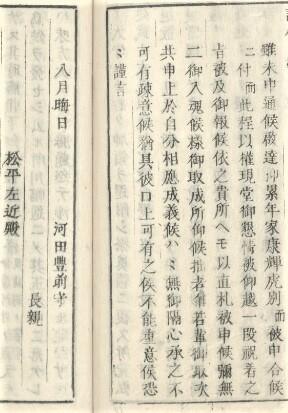 雖未申通候啓達抑累年家康輝虎別而被申合候
ニ付而此程以權現堂御懇情被仰越一段祝着之
旨被及御報候依之貴所ヘモ以直札被申候彌無
二御入魂候樣御取成所仰候拙者雖若輩御取次
共申上於自分相應成義候ハヽ無御隔心承之不
可有疎意候猶具彼口上可有之候不能重意候恐
ミ謹言
八月晦日　河田豊前守
長親
松平左近殿